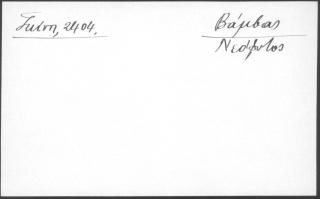 Σκίνη, 2404.
Βάμβας
Νεόφυτος